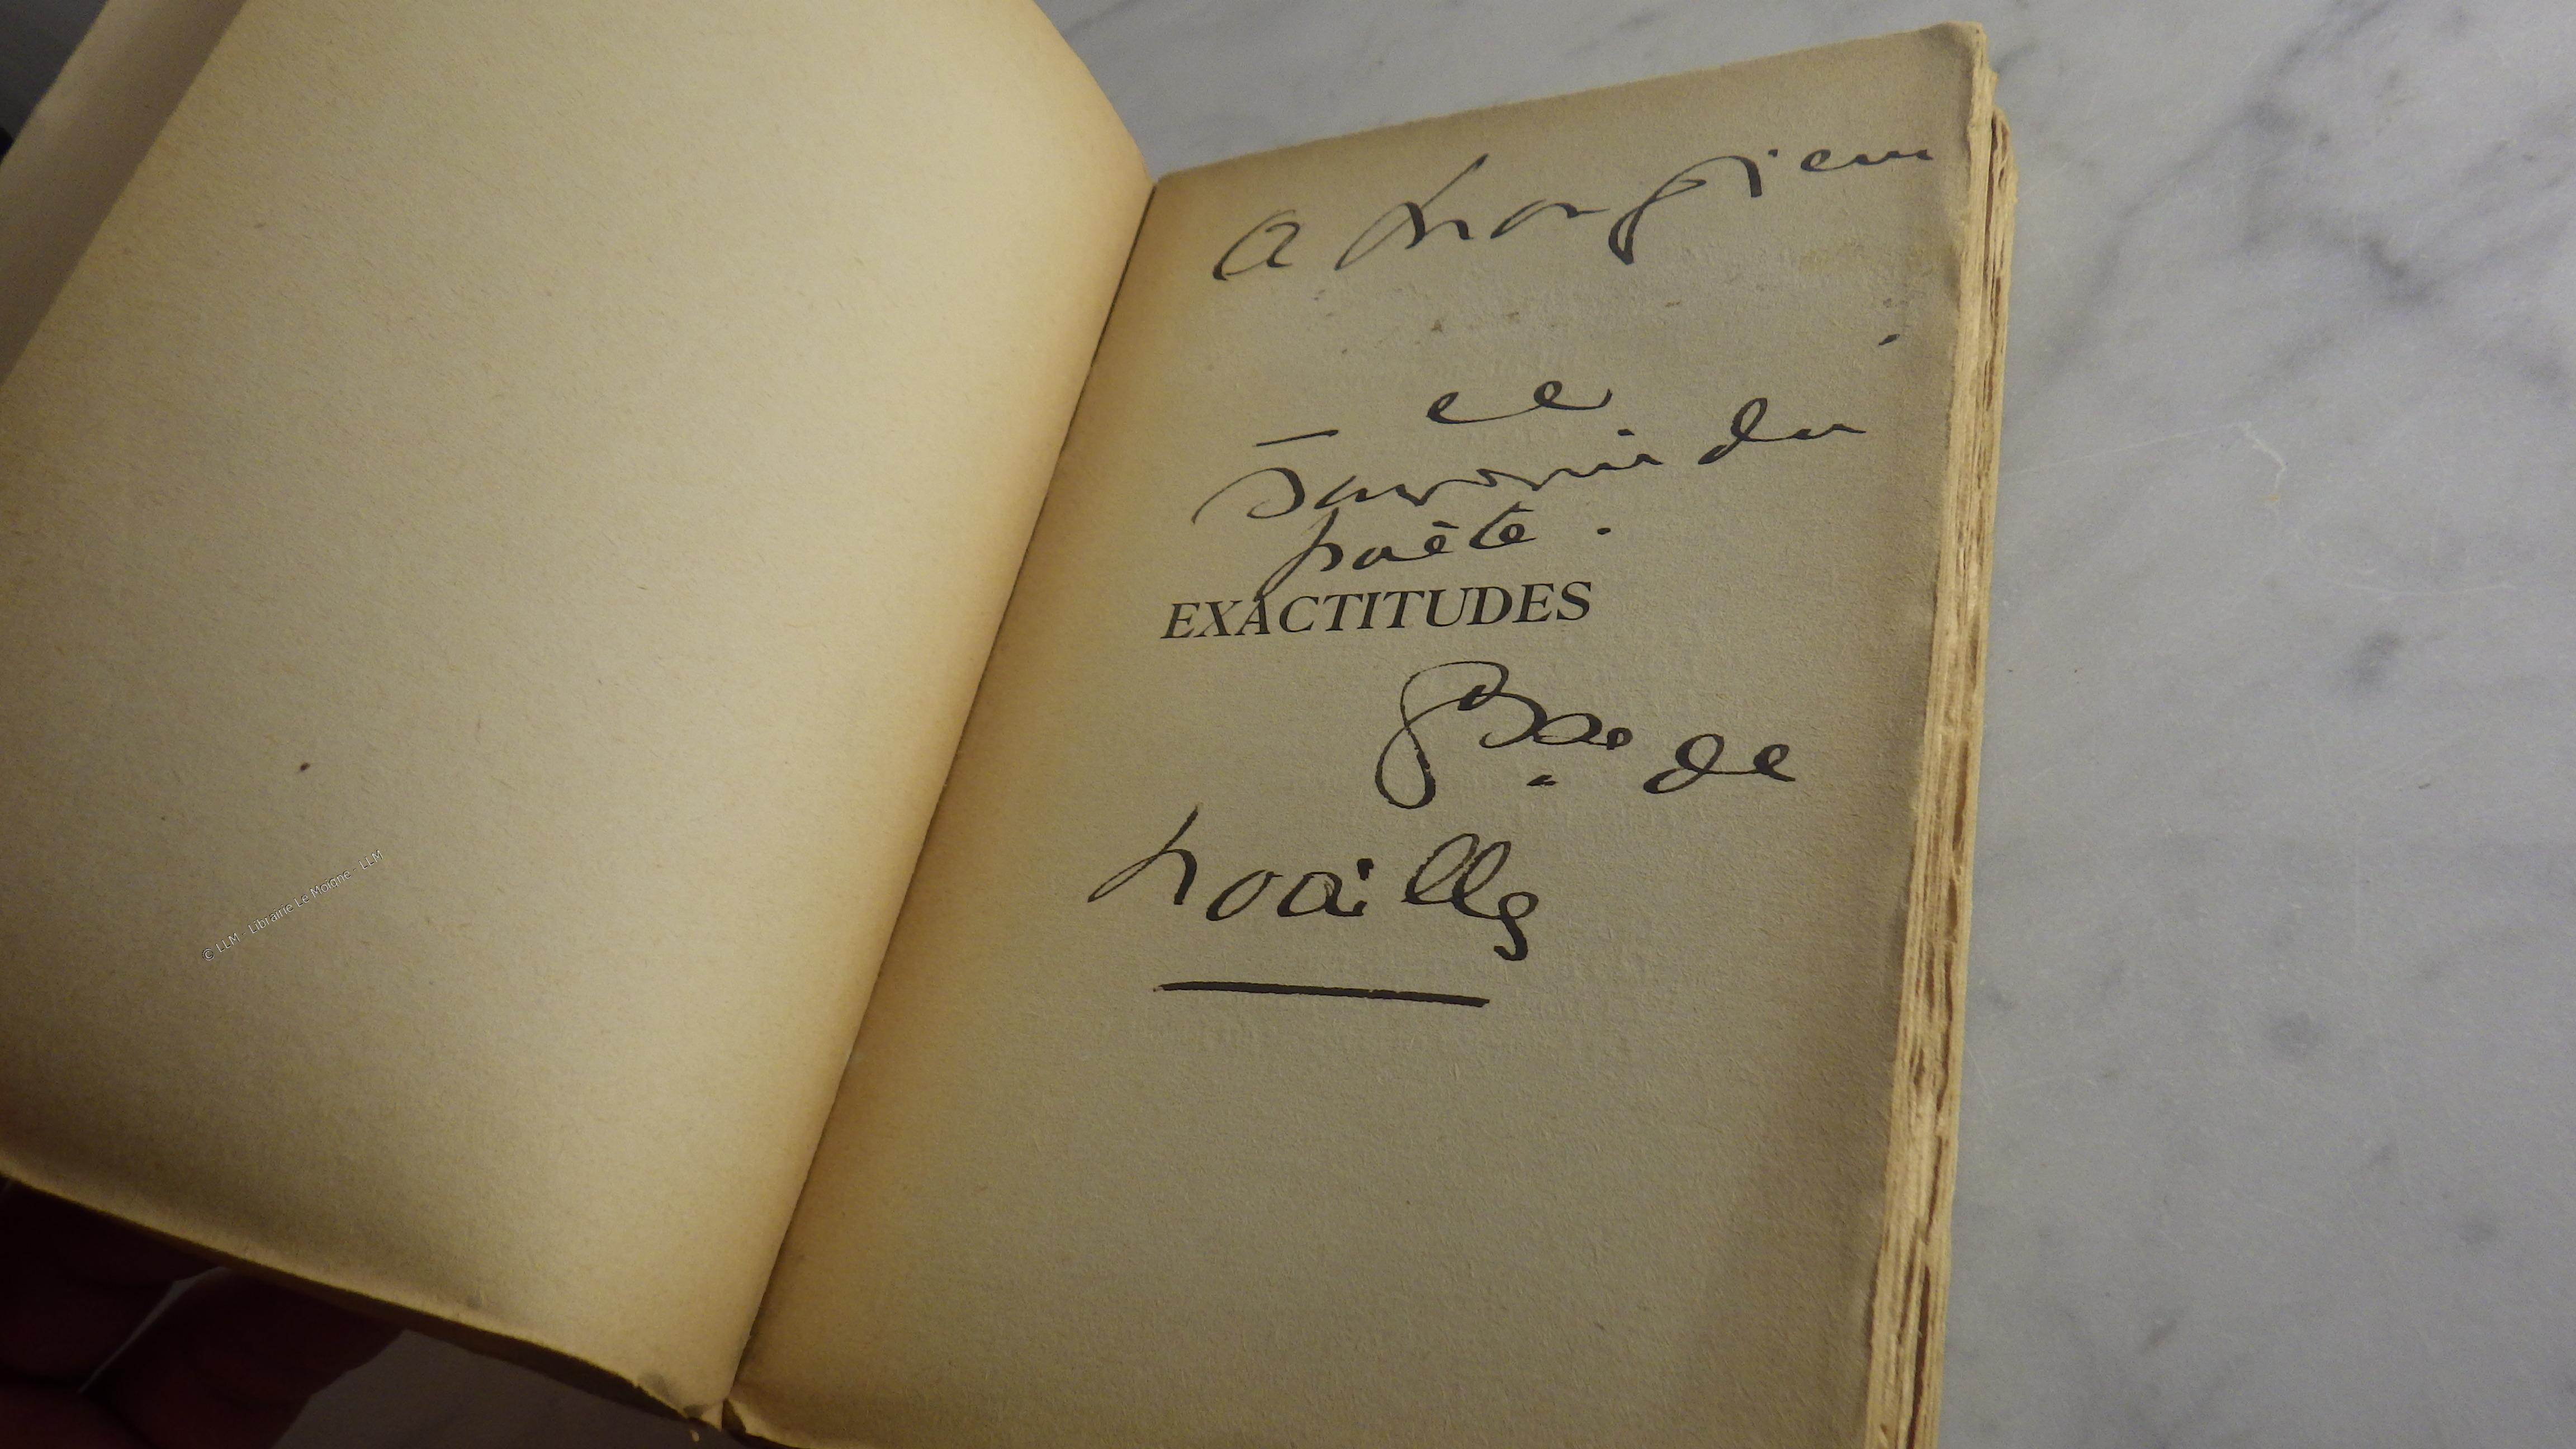 a Monsieur
ce
souvenir du
poète.
EXACTITUDES
de
Noailles
© LLM - Librairie Le Moigne - LLM